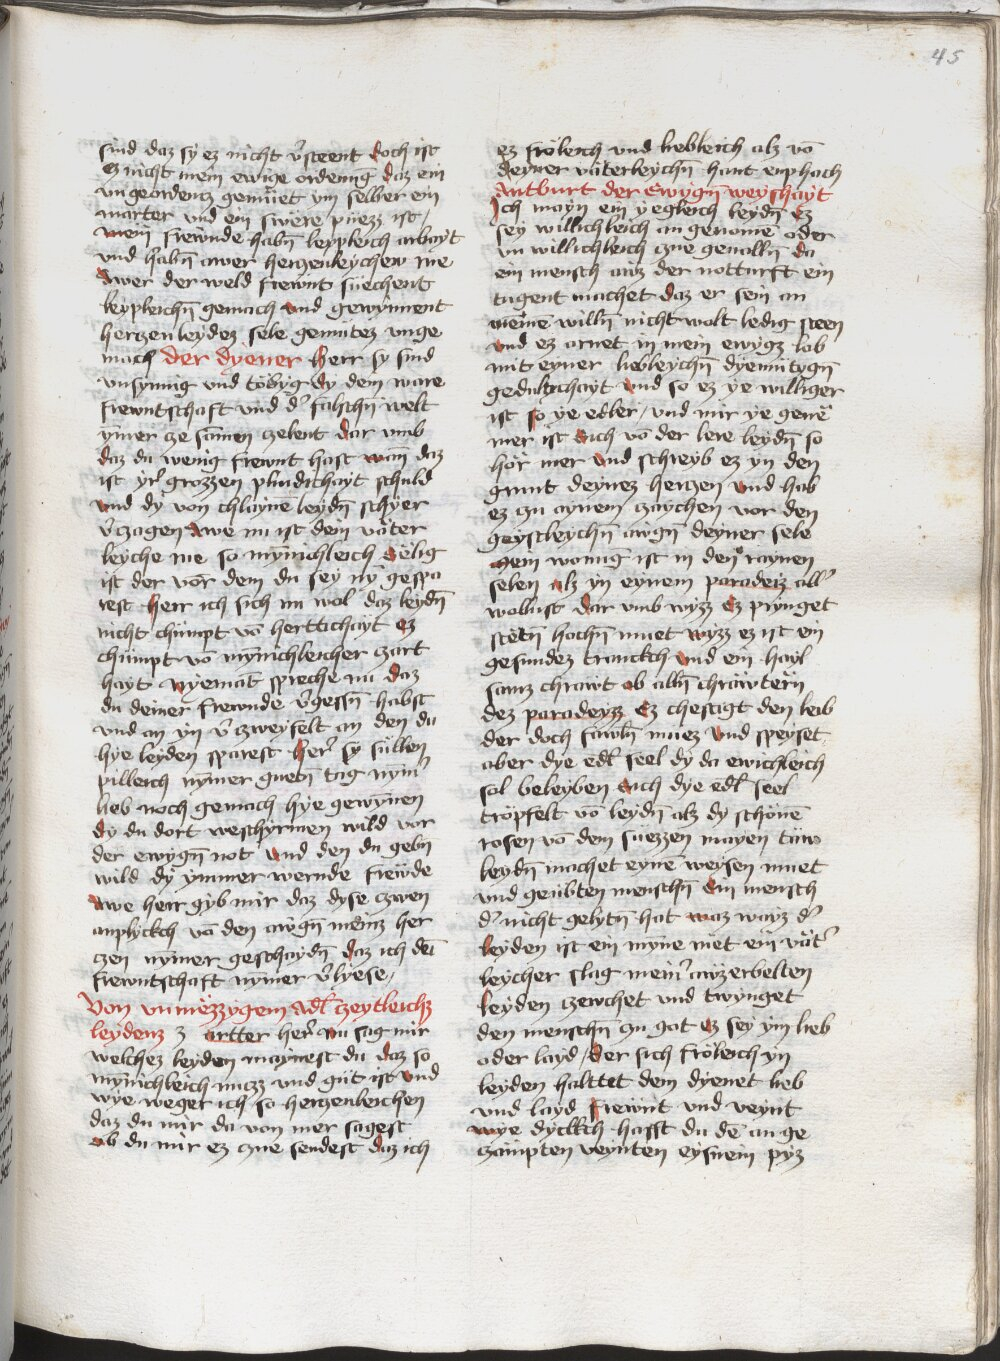 45
sind daz sy ez nicht v̉steent doch ist
Ez nicht mein ewige ordenung daz ein
vn geordentz gemüet ym selber ein
marter vnd ein swere püezz ist /
mein frewnde habn̄ leypleich arbayt
vnd habn̄ awer herczenleychew rue
Awer der weld frewnt suechent
leypleichn̄ gemach vnd gewynnent
herczenleydez sele gemütez vnge
mach der dyener herr sy sind
vnsynnig vnd töbyg dy dein ware
frewntschaft vnd d' falschn̄ welt
ymer ze samen zelent dar vmb
daz du wenig frewnt hast wan̄ daz
ist yr' grozzen plindichayt schuld
vnd dy von chlaynē leydn̄ schyer
v̉czagen Awe nu ist dein väter
leyche rue so mynnichleich Sëlig
ist der vor dem du sey ny gespa
rest herr ich sich nu wol daz leydn̄
nicht chümpt vō herttichayt ez
chümpt vō mynnichleicher czart
hayt Nyemāt spreche nu daz
du deiner frewnde v̉gessn̄ habst
vnd an yn v̉zweyfelt an den du
hye leyden sparest her' sy süllen
pilleich nymer guetn̄ tag nym'
lieb noch gemach hye gewynen
dy du dort weschyrmen wild vor
der ewygn̄ not vnd den du gebn̄
wild dy ymmer wernde frewde
Awe herr gyb mir daz dyse czwen
anplyckch vō den awgn̄ meinz her
czen nymer geschaydn̄ daz ich dei
frewntschaft nymer v̉lyese /
Von vnmëzzygem Adl̄ zeytleichz
leydenz 3 artter her' nu sag mir
welchez leyden maynest du daz so
mynnichleich nucz vnd gut ist vnd
wye weger ich so herczenleichen
daz du mir da von mer sagest
ob du mir ez zue sendest daz ich
ez fröleich vnd liebleich alz vō
deyner väterleychn̄ hant enphach
Antburt der Ewygn̄ weyshayt
Ich mayn ein yegleich leydn̄ Ez
sey willichleich an genomē oder
vn willichleich zue geualln̄ da
ein mensch auz der notturft ein
tugent machet daz er sein an
meinē willn̄ nicht wolt ledig steen
vnd ez ornet in mein ewygz lob
mit eyner liebleychn̄ dyemutygn̄
gedultichayt vnd so ez ye williger
ist so ye edler / vnd mir ye genē
mer ist Auch vō der lere leydn̄ so
hör mer vnd schreyb ez yn den
grunt deynez herczen vnd hab
ez zu aynem zaychen vor den
geystleychn̄ awgn̄ deyner sele
Mein wonung ist in den raynen
selen alz yn eynem paradeiz all'
wollust dar vmb wyzz Ez prynget
stëtn̄ hochn̄ muet wyzz ez ist ein
gesundez tranckch vnd ein hayl
samz chrawt ob alln̄ chräwtern
dez paradeyzz Ez chestigt den leib
der doch fawln̄ muez vnd speyset
aber dye edl̄ seel dy da ewichleich
sol beleyben Auch dye edl̄ seel
tröpfelt vō leydn̄ alz dy schönē
rosen vō dem suezzen mayen taw
leydn̄ machet eynē weysen muet
vnd geübten menschn̄ Ein mensch
d' nicht gelytn̄ hat waz wayz d'
leyden ist ein myne met ein vät'
leycher slag mein' awzerbelten
leyden zewchet vnd twynget
den menschn̄ zu got ez sey ym lieb
oder layd / der sich fröleich yn
leyden halttet dem dyenet lieb
vnd layd frewnt vnd veynt
wye dyckch hasst du dē an ge
zämpten veynten eysnein pyz